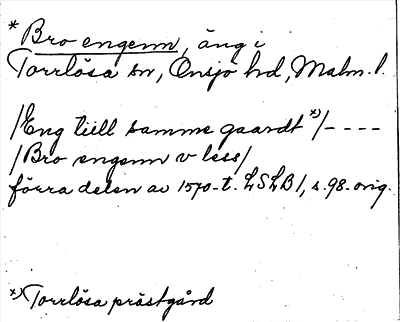 * Bro engenn, äng i
Torrlösa sn, Onsjö hd, Malm. l.
/Eng tiill samme gaardt x)/----
/Bro engenn v less/
förra delen av 1570-t. LSLB 1, s. 98. orig.
x) Torrlösa prästgård